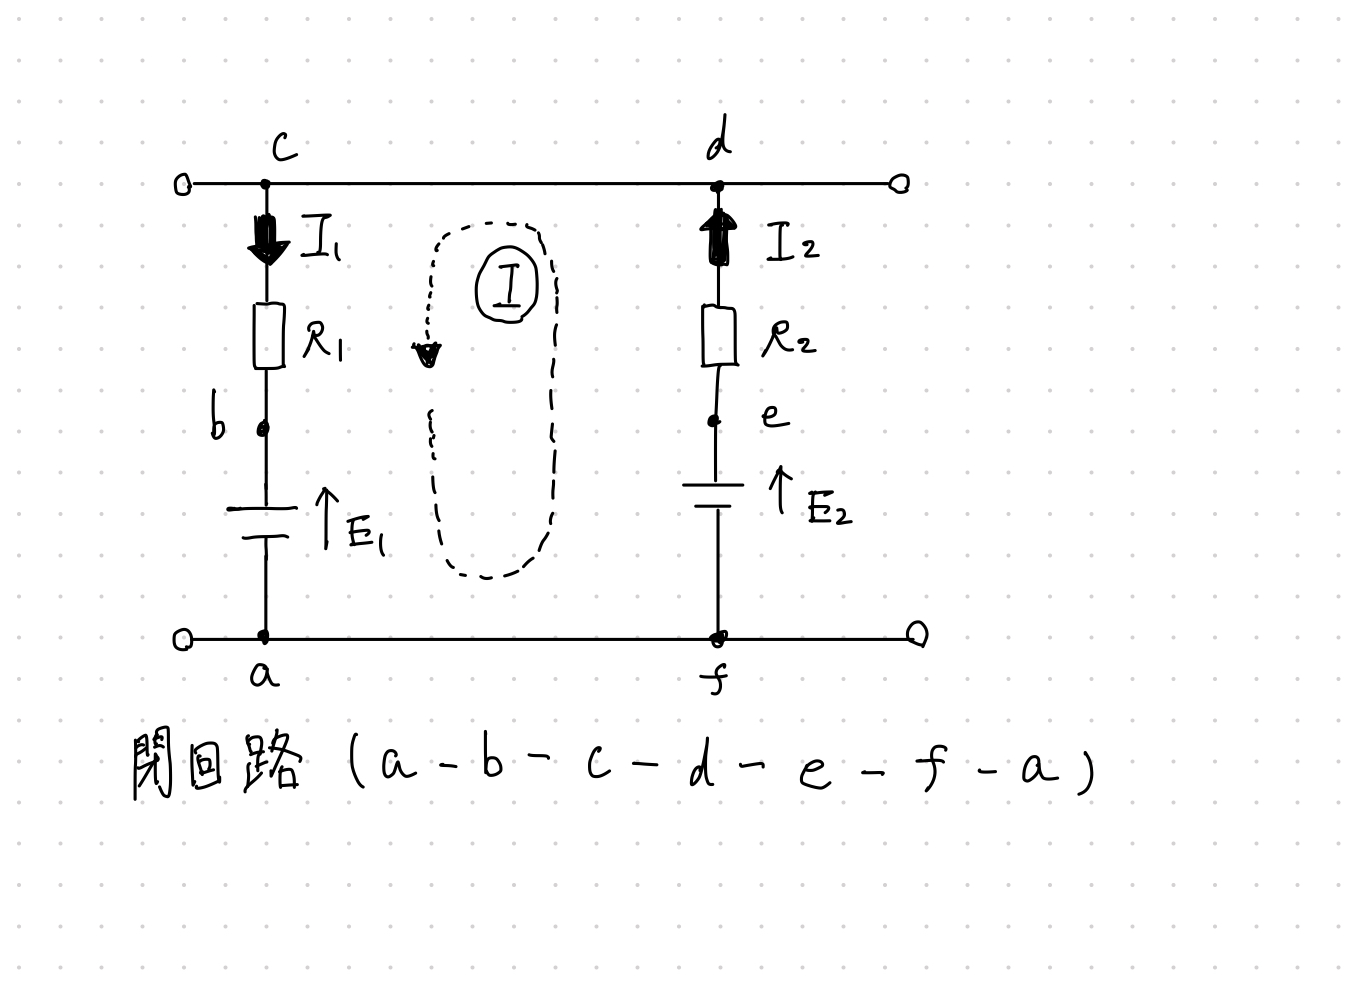 c d
I1 I I2
R1 R2
b e
E1 E2
a f
閉回路 (a - b - c - d - e - f - a)